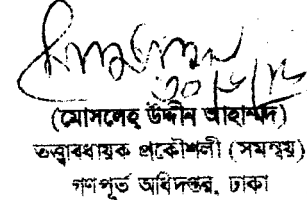 ৩০/৬/১৬
(মোসলেহ্ উদ্দীন আহাম্মদ)
তত্ত্বাবধায়ক প্রকৌশলী (সমন্বয়)
গণপূর্ত অধিদপ্তর, ঢাকা